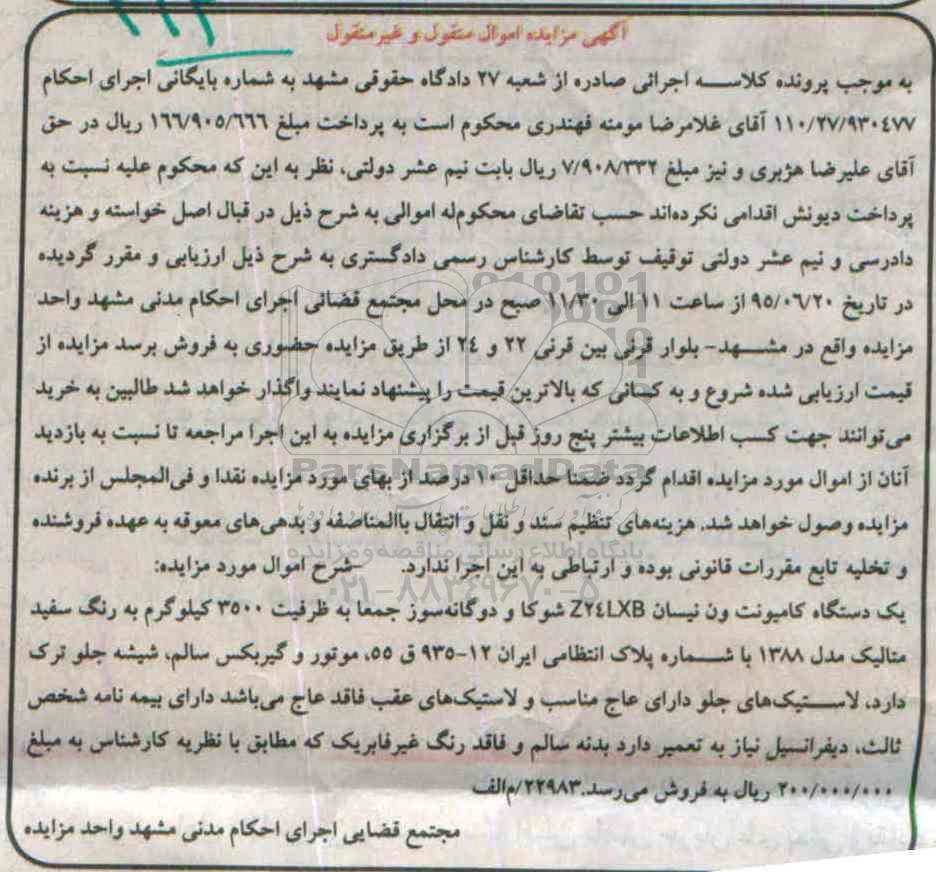 ۲۲۳
آگهی مزایده اموال منقول و غیرمنقول
به موجب پرونده کلاسه اجرائی صادره از شعبه ۲۷ دادگاه حقوقی مشهد به شماره بایگانی اجرای احکام
۱۱۰/۲۷/۹۳۰٤۷۷ آقای غلامرضا مومنه فهندری محکوم است به پرداخت مبلغ ۱٦٦/۹۰٥/٦٦٦ ریال در حق
آقای علیرضا هژبری و نیز مبلغ ۷/۹۰۸/۳۳۲ ریال بابت نیم عشر دولتی، نظر به این که محکوم علیه نسبت به
پرداخت دیونش اقدامی نکرده‌اند حسب تقاضای محکوم‌له اموالی به شرح ذیل در قبال اصل خواسته و هزینه
دادرسی و نیم عشر دولتی توقیف توسط کارشناس رسمی دادگستری به شرح ذیل ارزیابی و مقرر گردیده
در تاریخ ۹٥/۰٦/۲۰ از ساعت ۱۱ الی ۱۱/۳۰ صبح در محل مجتمع قضائی اجرای احکام مدنی مشهد واحد
مزایده واقع در مشهد- بلوار قرنی بین قرنی ۲۲ و ۲٤ از طریق مزایده حضوری به فروش برسد مزایده از
قیمت ارزیابی شده شروع و به کسانی که بالاترین قیمت را پیشنهاد نمایند واگذار خواهد شد طالبین به خرید
می‌توانند جهت کسب اطلاعات بیشتر پنج روز قبل از برگزاری مزایده به این اجرا مراجعه تا نسبت به بازدید
ParsNamadData
آنان از اموال مورد مزایده اقدام گردد ضمنا حداقل ۱۰ درصد از بهای مورد مزایده نقدا و فی‌المجلس از برنده
مزایده وصول خواهد شد. هزینه‌های تنظیم سند و نقل و انتقال باالمناصفه و بدهی‌های معوقه به عهده فروشنده
پایگاه اطلاع رسانی مناقصه و مزایده
و تخلیه تابع مقررات قانونی بوده و ارتباطی به این اجرا ندارد. -شرح اموال مورد مزایده:
۰۲۱-۸۸۳۴۹۶۷۰-۵
یک دستگاه کامیونت ون نیسان Z۲٤LXB شوکا و دوگانه‌سوز جمعا به ظرفیت ۳٥۰۰ کیلوگرم به رنگ سفید
متالیک مدل ۱۳۸۸ با شماره پلاک انتظامی ایران ۱۲-۹۳٥ ق ٥٥، موتور و گیربکس سالم، شیشه جلو ترک
دارد، لاستیک‌های جلو دارای عاج مناسب و لاستیک‌های عقب فاقد عاج می‌باشد دارای بیمه نامه شخص
ثالث، دیفرانسیل نیاز به تعمیر دارد بدنه سالم و فاقد رنگ غیرفابریک که مطابق با نظریه کارشناس به مبلغ
۲۰۰/۰۰۰/۰۰۰ ریال به فروش می‌رسد.۲۲۹۸۳/م‌الف
مجتمع قضایی اجرای احکام مدنی مشهد واحد مزایده